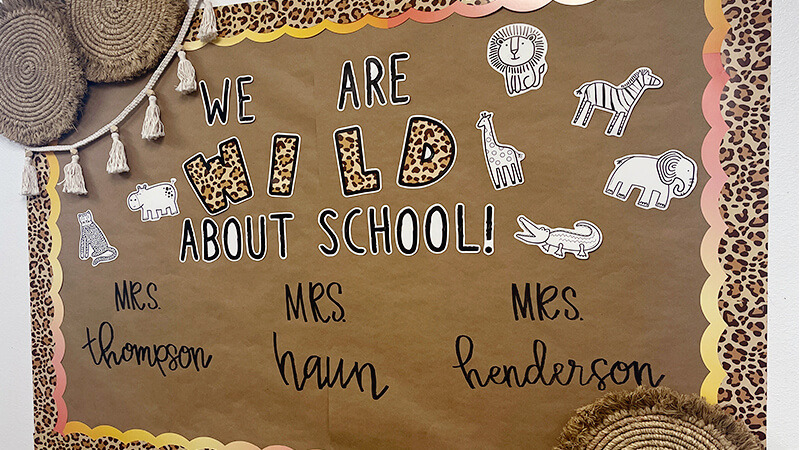 WE ARE
WILD
ABOUT SCHOOL!
MRS. MRS. MRS.
thompson haun henderson